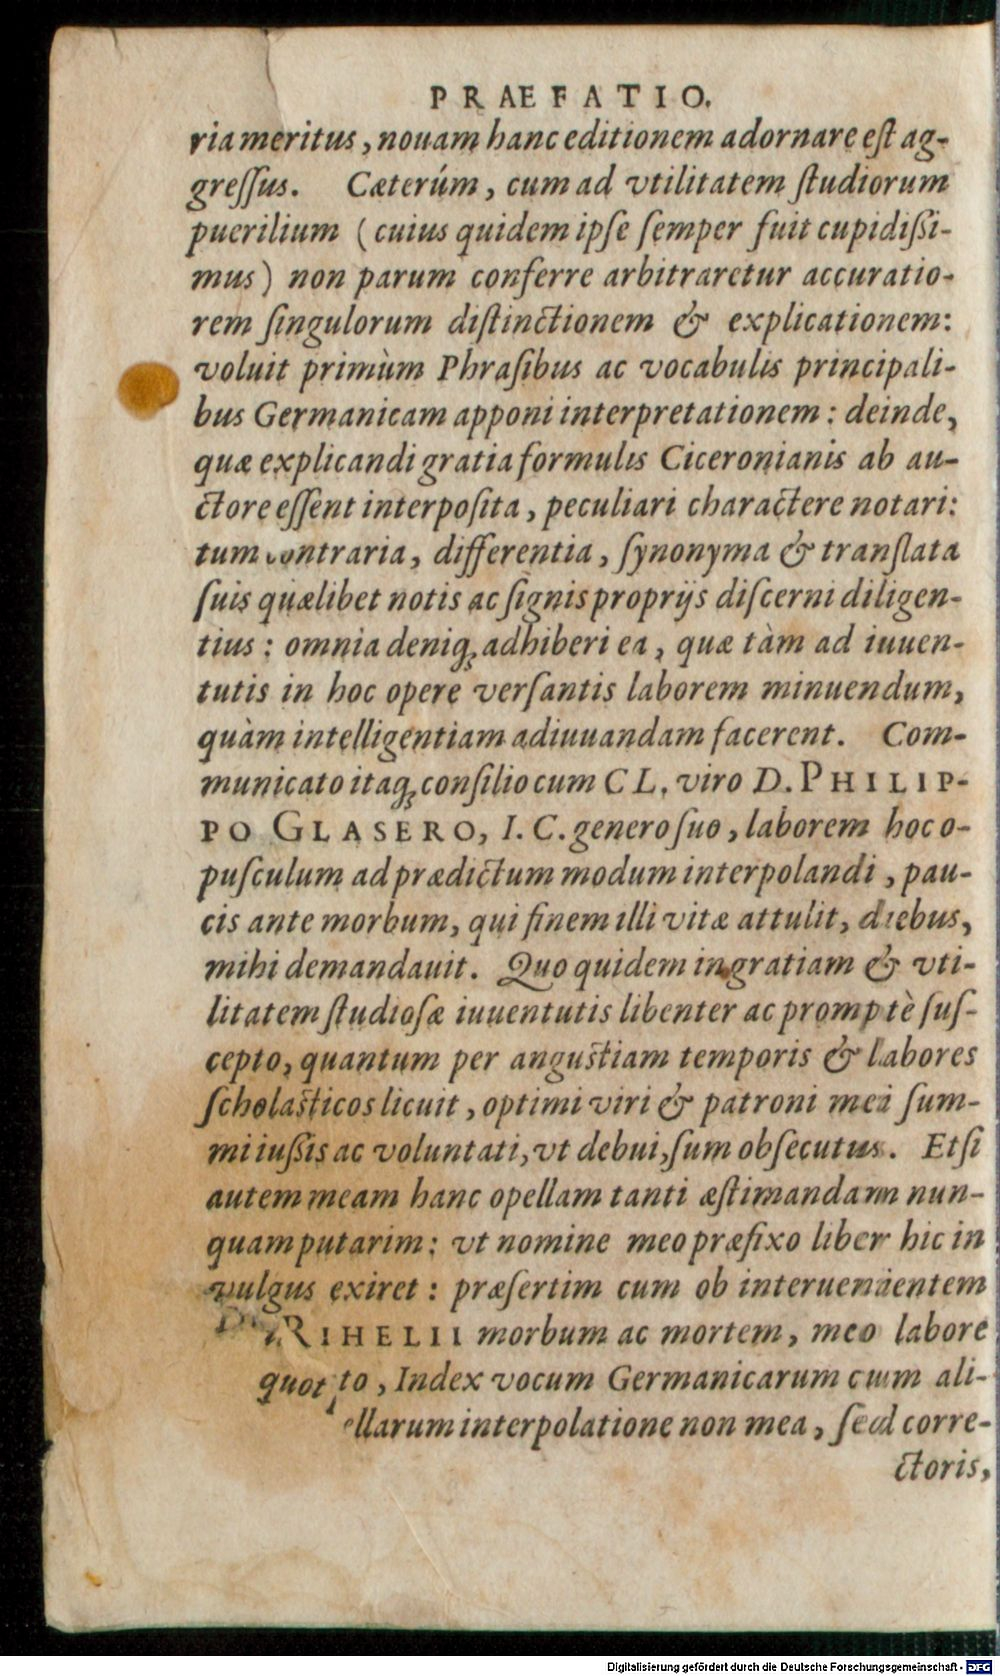 PRAEFATIO.
ria meritus, nouam hanc editionem adornare est ag-
gressus. Cæterúm, cum ad vtilitatem studiorum
puerilium (cuius quidem ipse semper fuit cupidissi-
mus) non parum conferre arbitraretur accuratio-
rem singulorum distinctionem & explicationem:
voluit primùm Phrasibus ac vocabulis principali-
bus Germanicam apponi interpretationem: deinde,
quæ explicandi gratia formulis Ciceronianis ab au-
ctore essent interposita, peculiari charactere notari:
tum contraria, differentia, synonyma & translata
suis quælibet notis ac signis proprijs discerni diligen-
tius: omnia deniq; adhiberi ea, quæ tàm ad iuuen-
tutis in hoc opere versantis laborem minuendum,
quàm intelligentiam adiuuandam facerent. Com-
municato itaq; consilio cum CL. viro D. PHILIP-
PO GLASERO, I. C. genero suo, laborem hoc o-
pusculum ad prædictum modum interpolandi, pau-
cis ante morbum, qui finem illi vitæ attulit, diebus,
mihi demandauit. Quo quidem in gratiam & vti-
litatem studiosæ iuuentutis libenter ac promptè sus-
cepto, quantum per angustiam temporis & labores
scholasticos licuit, optimi viri & patroni mei sum-
mi iussis ac voluntati, vt debui, sum obsecutus. Etsi
autem meam hanc opellam tanti æstimandam nun-
quam putarim: vt nomine meo præfixo liber hic in
vulgus exiret: præsertim cum ob interuenientem
RIHELII morbum ac mortem, meo labore
to, Index vocum Germanicarum cum ali-
ellarum interpolatione non mea, sed corre-
ctoris,
Digitalisierung gefördert durch die Deutsche Forschungsgemeinschaft - DFG